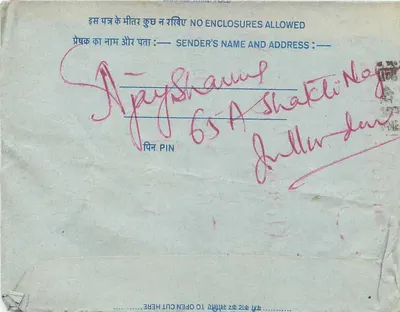 इस पत्र के भीतर कुछ न रखिए NO ENCLOSURES ALLOWED
प्रेषक का नाम और पता :— SENDER'S NAME AND ADDRESS :—
Ajay Sharma
65 A Shakti Nagar
पिन PIN
Jullundur
TO OPEN CUT HERE